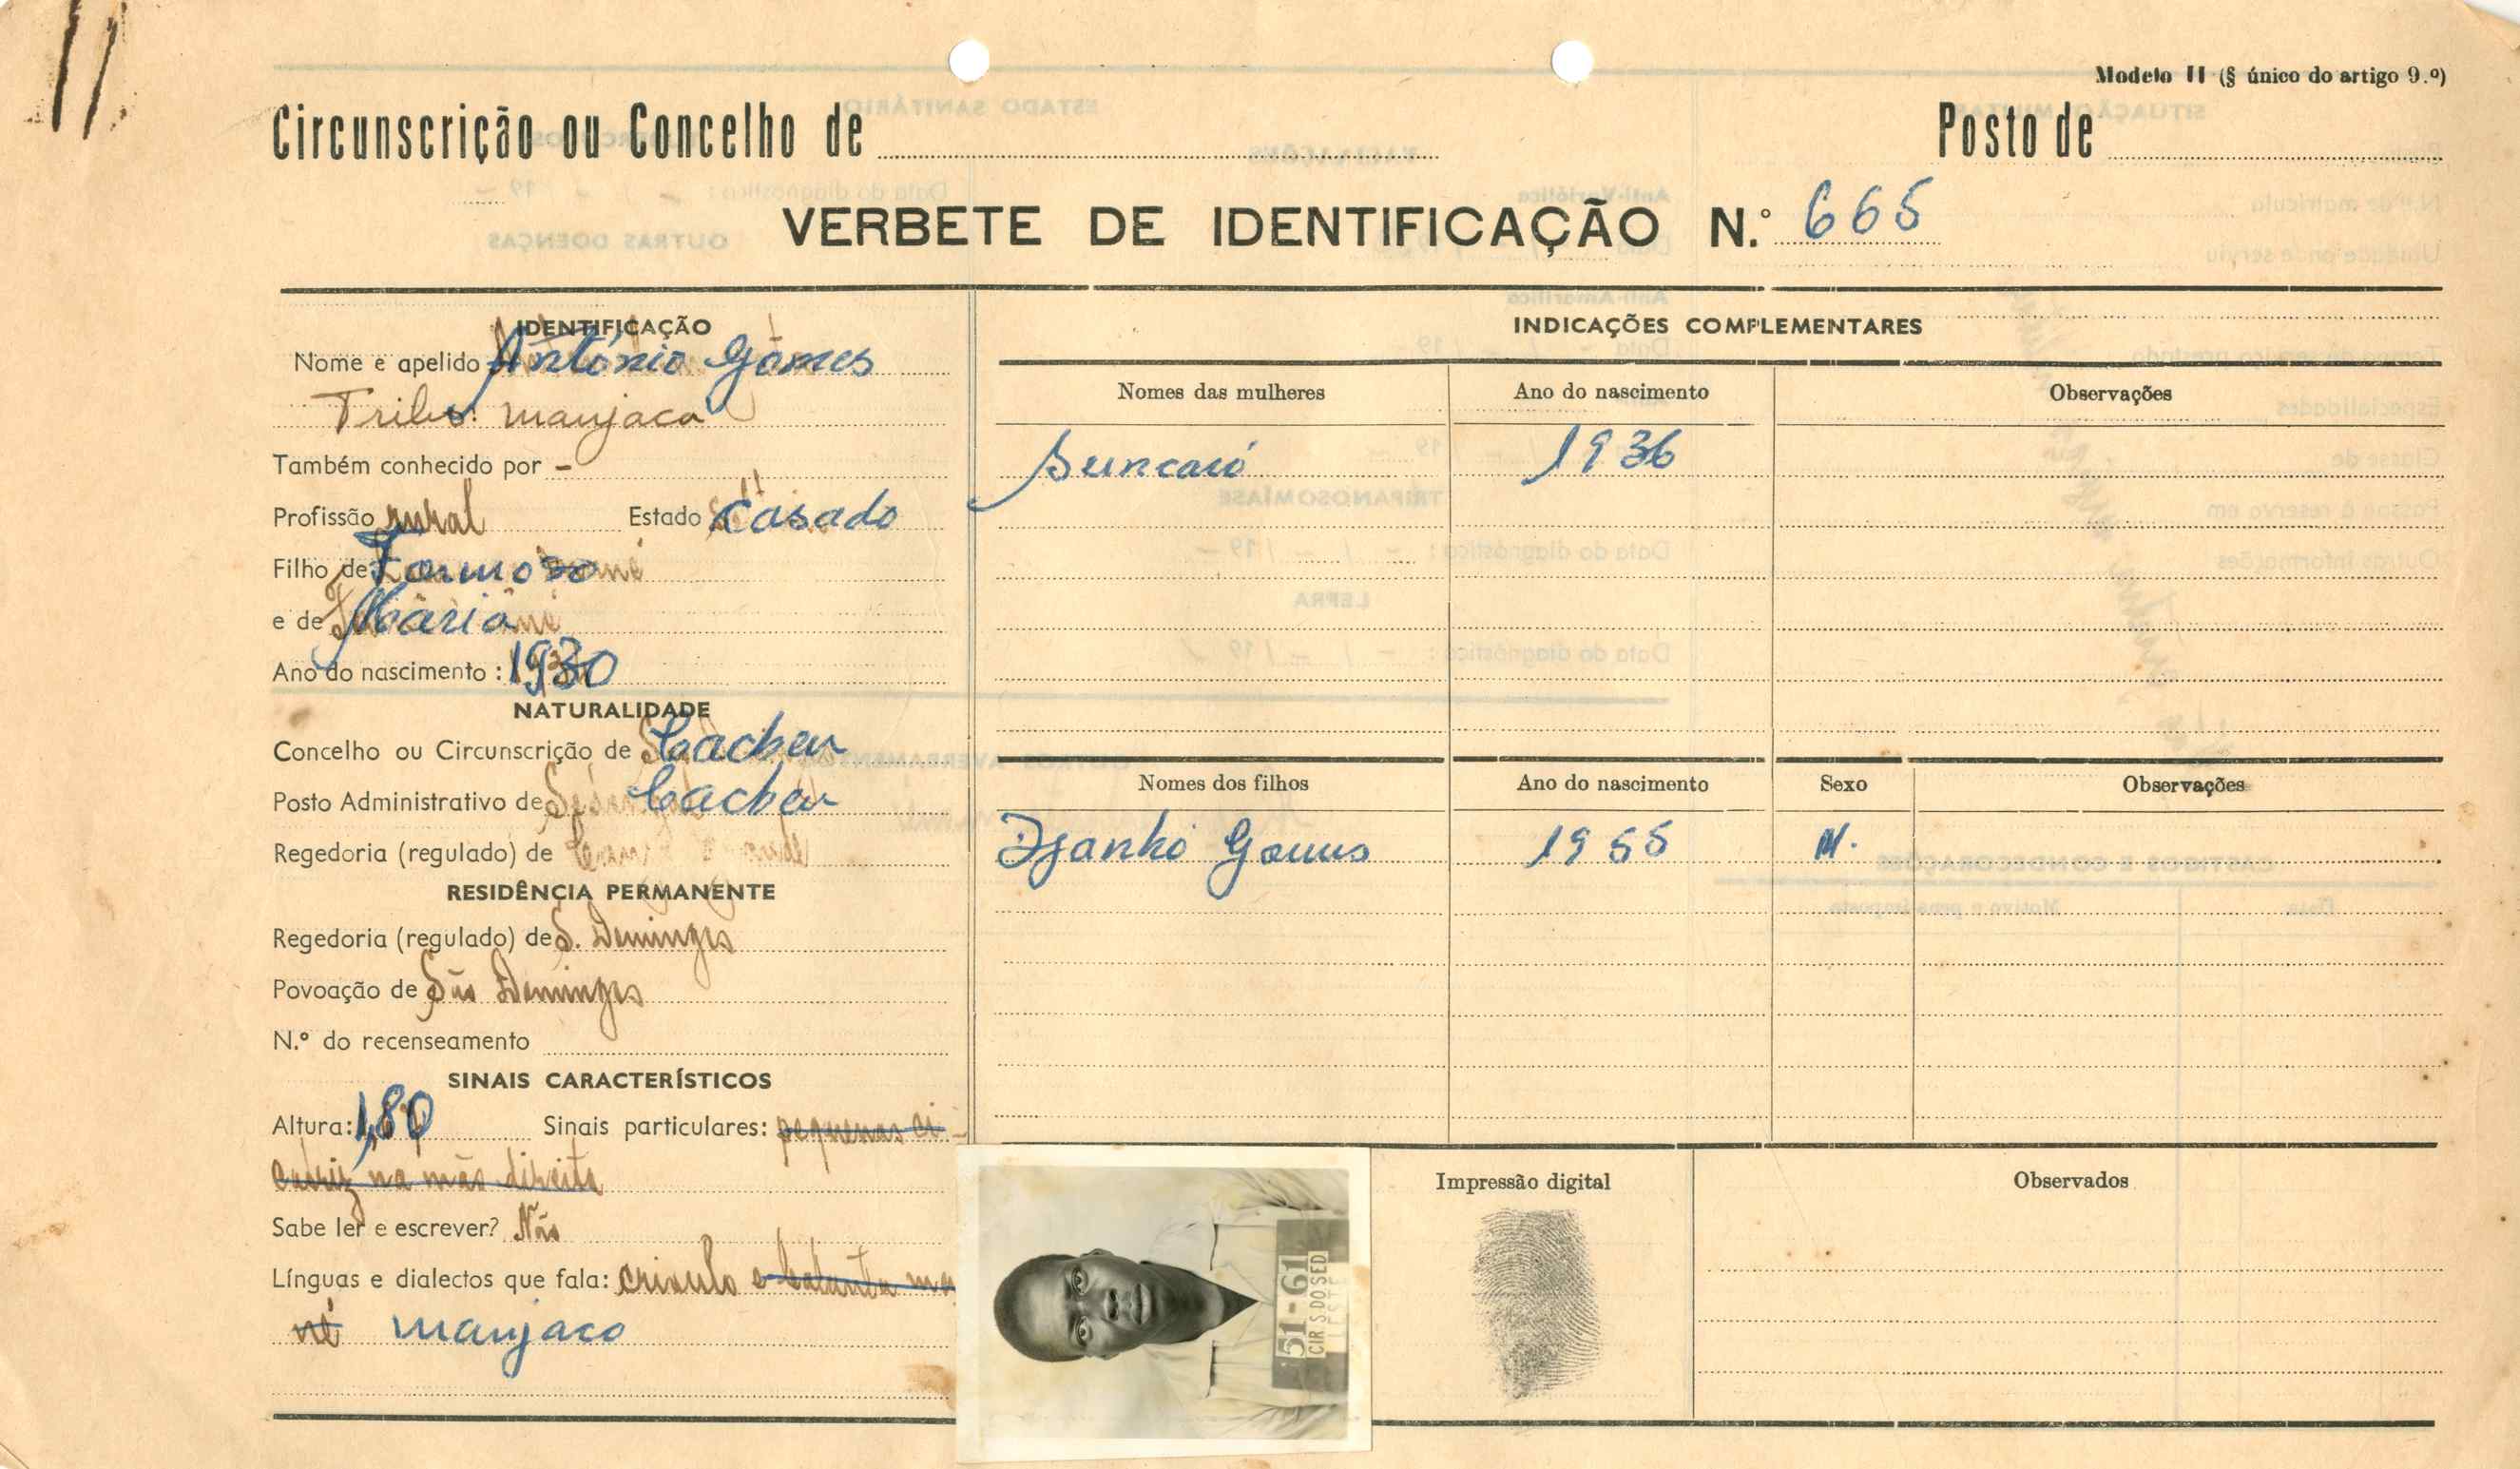 Modelo II (§ único do artigo 9.º)
Circunscrição ou Concelho de Posto de
VERBETE DE IDENTIFICAÇÃO N.º 665
IDENTIFICAÇÃO
Nome e apelido António Gomes
Tribo: manjaca
Também conhecido por -
Profissão rural Estado Casado
Filho de Formoso
e de Maria
Ano do nascimento : 1930
NATURALIDADE
Concelho ou Circunscrição de Cacheu
Posto Administrativo de Cacheu
Regedoria (regulado) de
RESIDÊNCIA PERMANENTE
Regedoria (regulado) de S. Domingos
Povoação de São Domingos
N.º do recenseamento
SINAIS CARACTERÍSTICOS
Altura: 1,80 Sinais particulares: pequenas ci-
catriz na mão direita
Sabe ler e escrever? Não
Línguas e dialectos que fala: crioulo e balanta ma
né manjaco
INDICAÇÕES COMPLEMENTARES
Nomes das mulheres Ano do nascimento Observações
1936
Nomes dos filhos Ano do nascimento Sexo Observações
Djankó Gomes 1955 M.
51-61
CIR S. DO SED
Impressão digital Observados